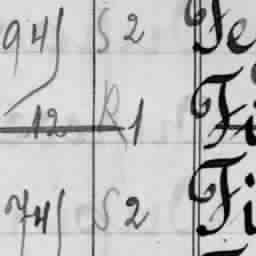 94 S 2 Fe
12 R 1 Fi
74 S 2 Fi